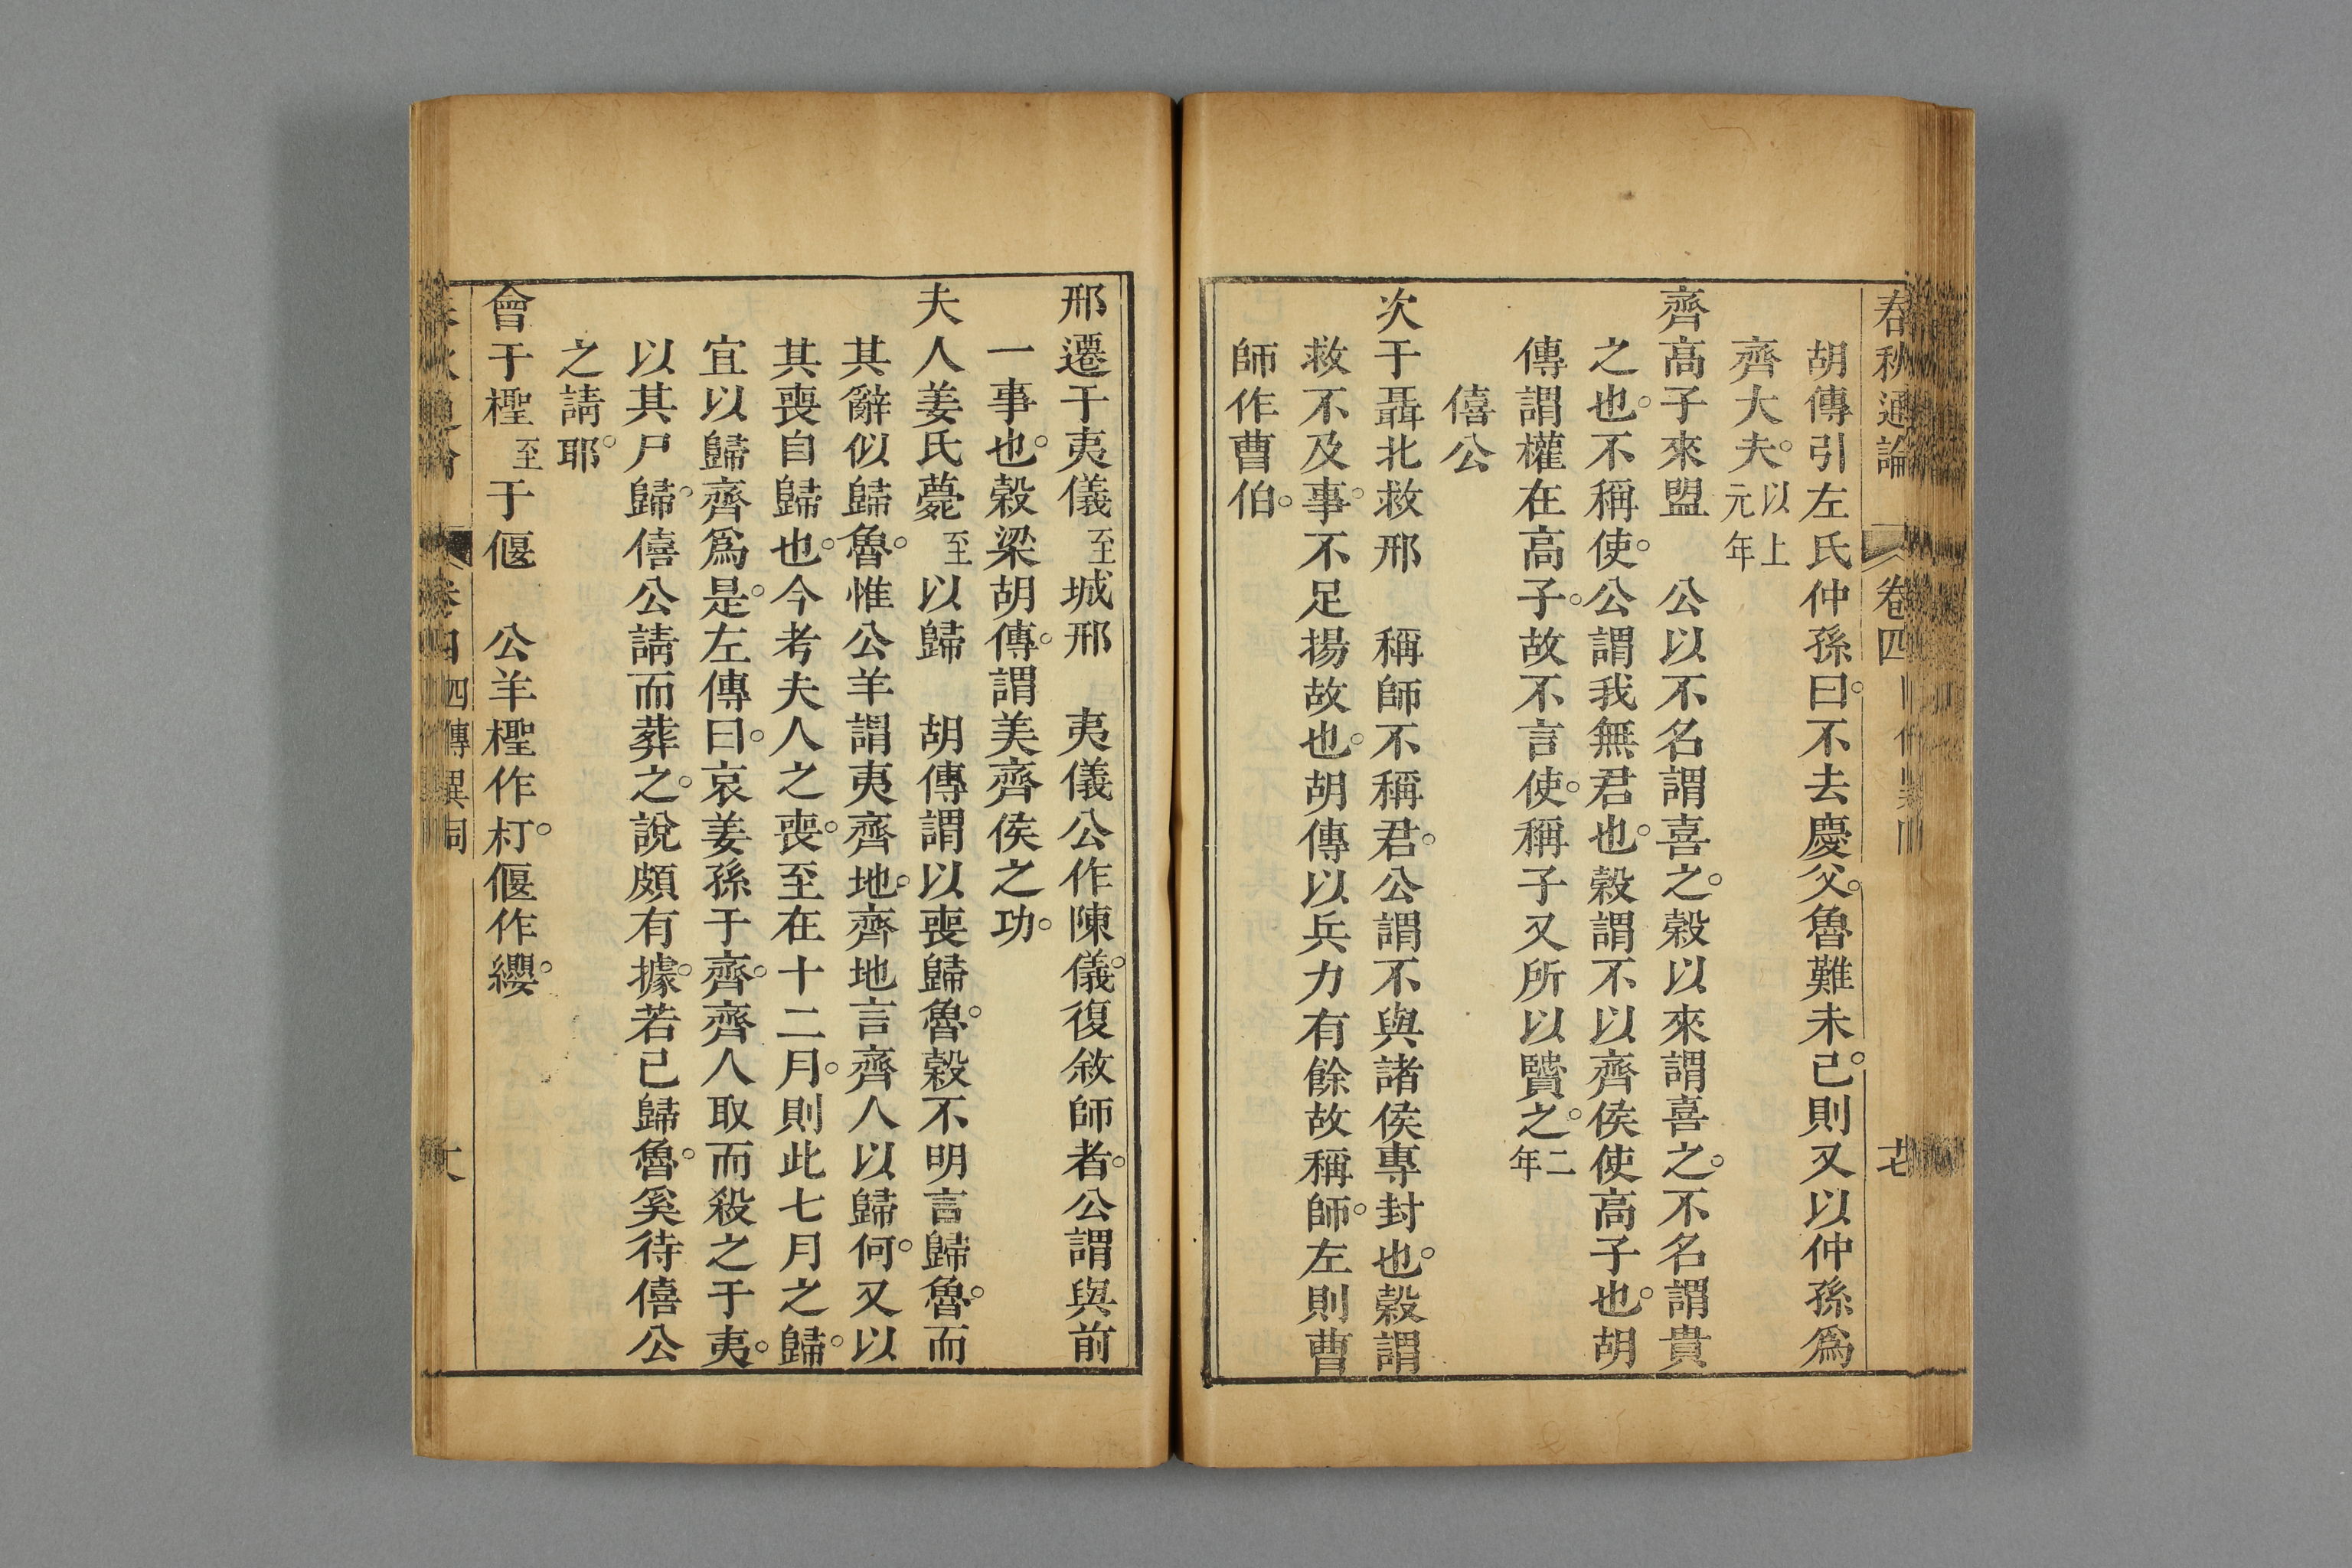 春秋通論 卷四 十七
胡傳引左氏仲孫曰。不去慶父。魯難未已。則又以仲孫爲
齊大夫。以上元年
齊高子來盟　公以不名謂喜之。穀以來謂喜之。不名謂貴
之也。不稱使。公謂我無君也。穀謂不以齊侯使高子也。胡
傳謂權在高子。故不言使。稱子又所以賢之。二年
僖公
次于聶北救邢　稱師不稱君。公謂不與諸侯專封也。穀謂
救不及事。不足揚故也。胡傳以兵力有餘故稱師。左則曹
師作曹伯。
邢遷于夷儀至城邢　夷儀公作陳儀。復敘師者。公謂與前
一事也。穀梁胡傳。謂美齊侯之功。
夫人姜氏薨至以歸　胡傳謂以喪歸魯。穀不明言歸魯。而
其辭似歸魯。惟公羊謂夷齊地。齊地言齊人以歸何。又以
其喪自歸也。今考夫人之喪。至在十二月。則此七月之歸。
宜以歸齊爲是。左傳曰。哀姜孫于齊。齊人取而殺之于夷。
以其尸歸。僖公請而葬之。說頗有據。若已歸魯。奚待僖公
之請耶。
會于檉至于偃　公羊檉作朾。偃作纓。
卷四 四傳異同